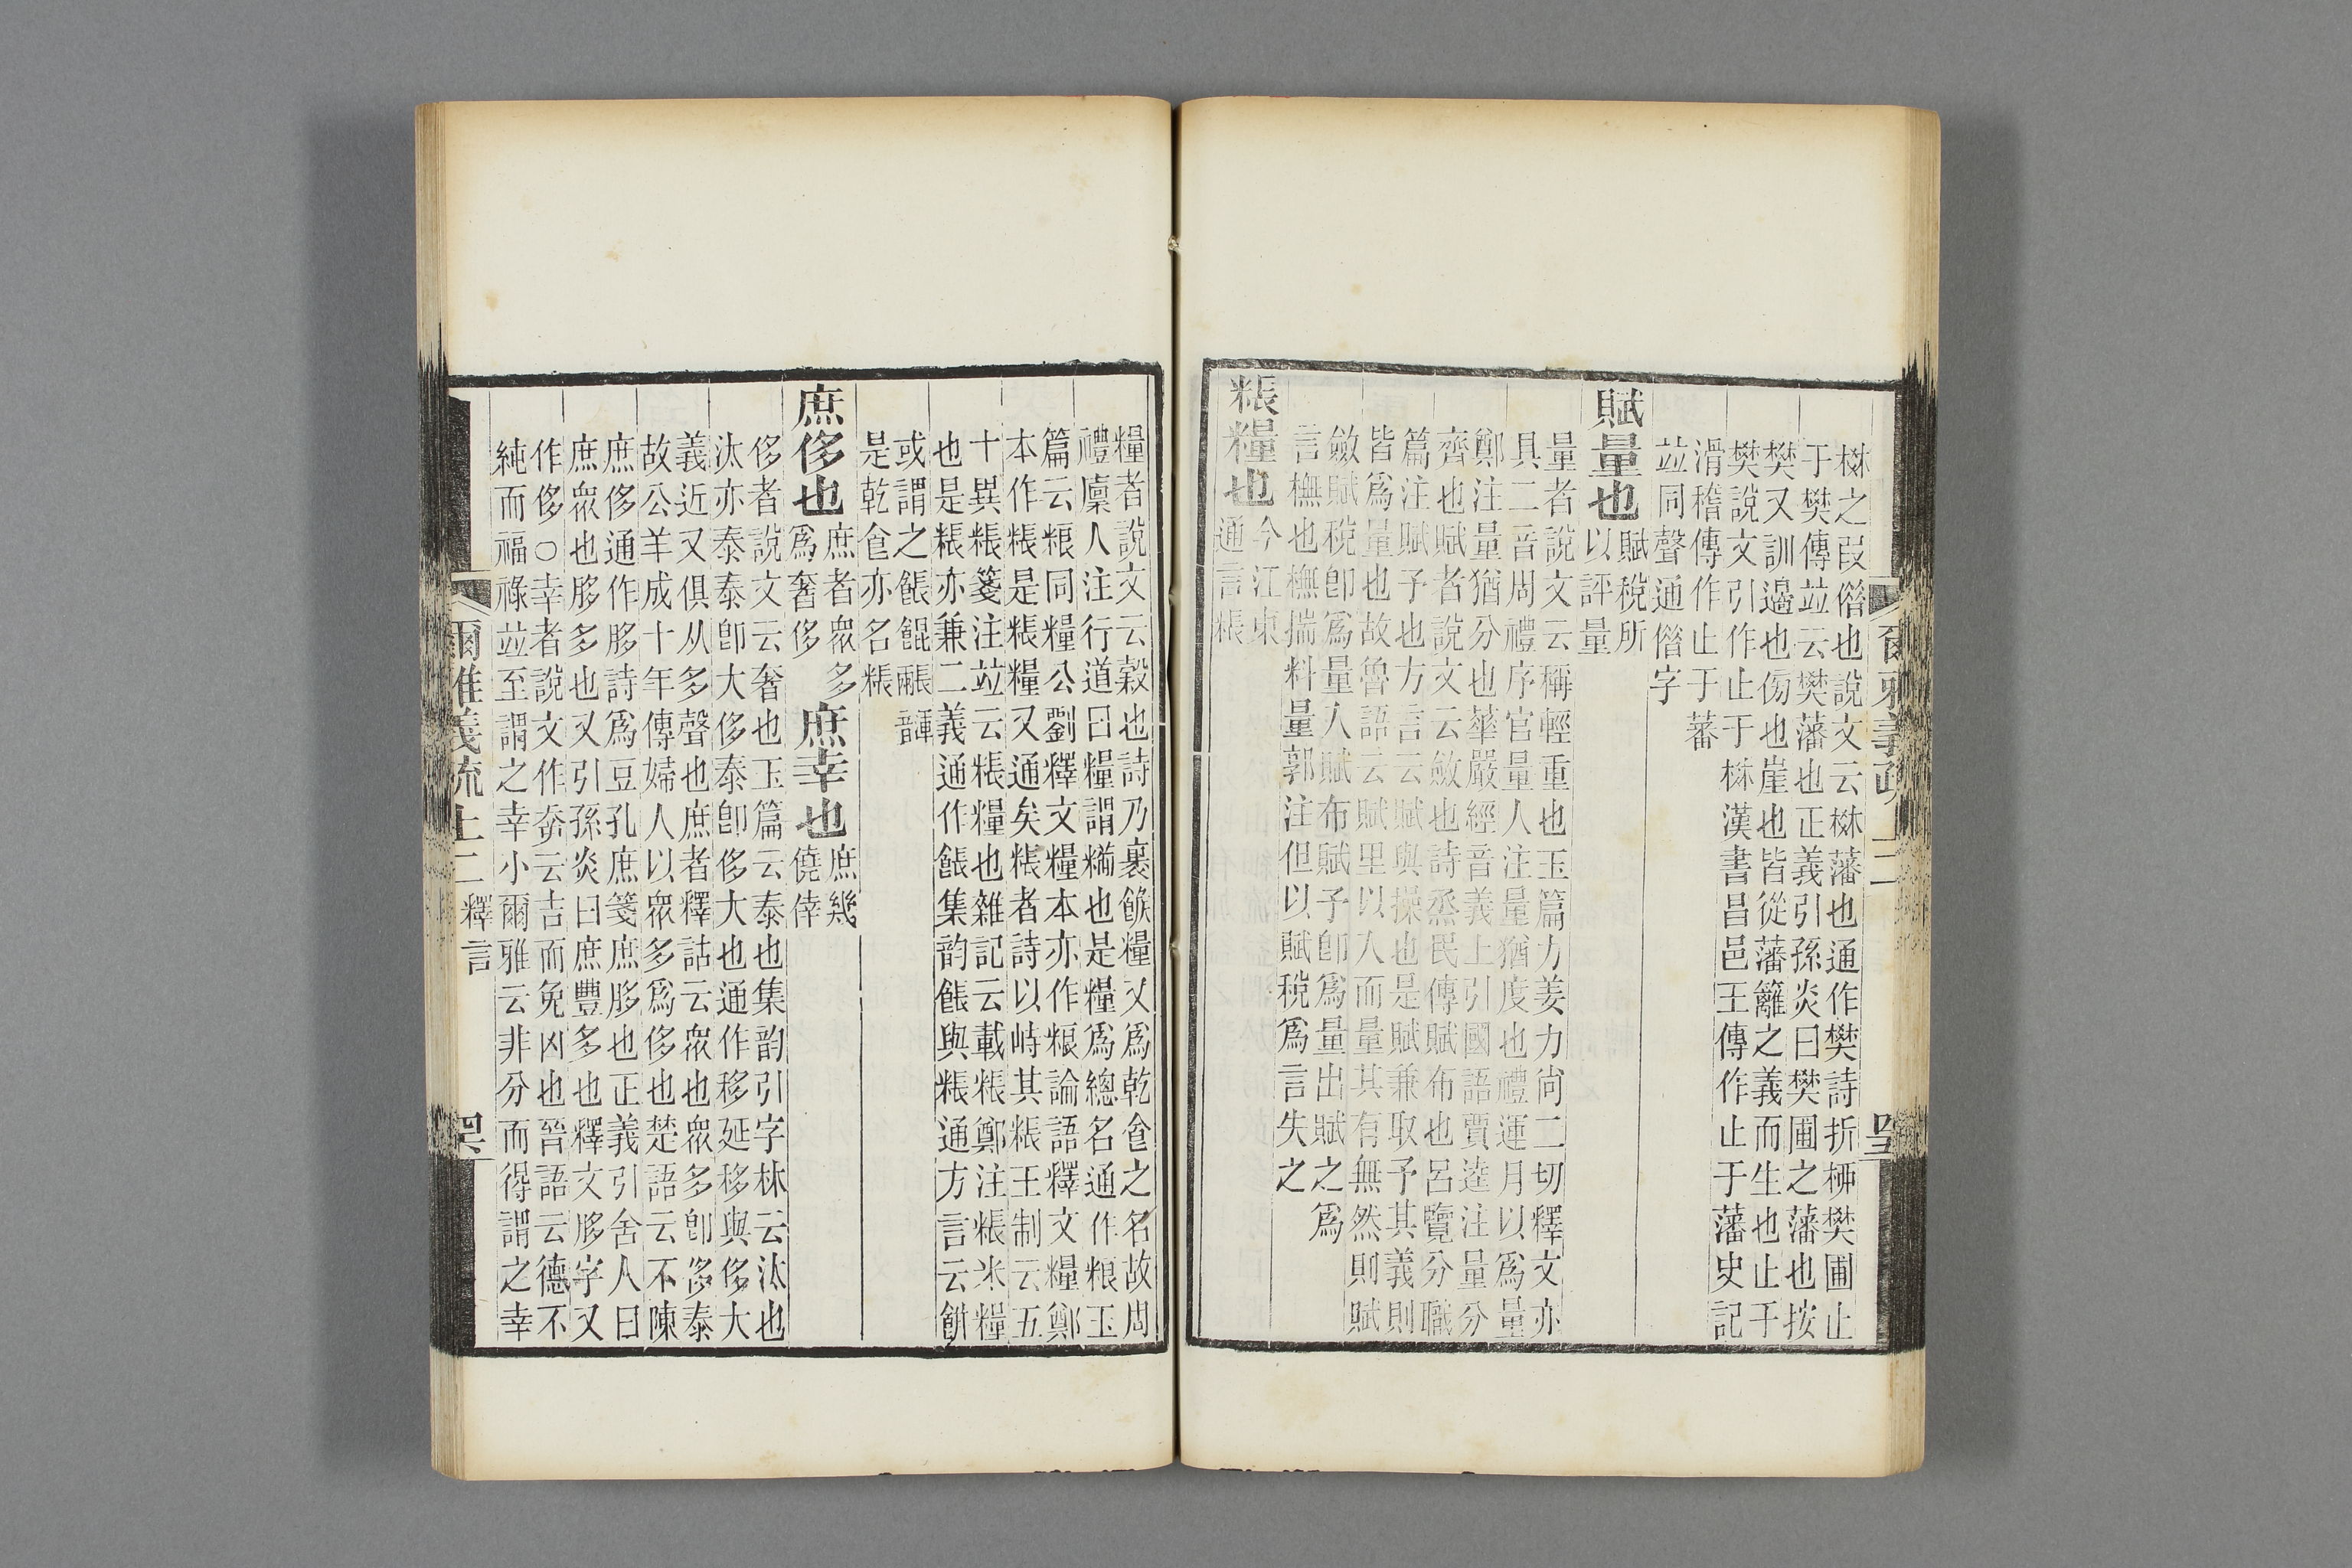 棥之叚偺也說文云棥藩也通作樊詩折桺樊圃止
于樊傳竝云樊藩也正義引孫炎曰樊圃之藩也按
樊又訓邊也傍也崖也皆從藩籬之義而生也止于
樊說文引作止于棥漢書昌邑王傳作止于藩史記
滑稽傳作止于蕃
竝同聲通偺字
賦量也賦稅所以評量
量者說文云稱輕重也玉篇力姜力尙二切釋文亦
具二音周禮序官量人注量猶度也禮運月以爲量
鄭注量猶分也華嚴經音義上引國語賈逵注量分
齊也賦者說文云斂也詩烝民傳賦布也呂覽分職
篇注賦予也方言云賦與操也是賦兼取予其義則
皆爲量也故魯語云賦里以入而量其有無然則賦
斂賦稅卽爲量入賦布賦予卽爲量出賦之爲
言橅也橅揣料量郭注但以賦稅爲言失之
粻糧也今江東通言粻
糧者說文云穀也詩乃裹餱糧又爲乾食之名故周
禮廩人注行道曰糧謂糒也是糧爲總名通作粮玉
篇云粮同糧公劉釋文糧本亦作粮論語釋文糧鄭
本作粻是粻糧又通矣粻者詩以峙其粻王制云五
十異粻箋注竝云粻糧也雜記云載粻鄭注粻米糧
也是粻亦兼二義通作餦集韵餦與粻通方言云餠
或謂之餦餛餦䭓
是乾食亦名粻
庶侈也庶者衆多爲奢侈 庶幸也庶幾僥倖
侈者說文云奢也玉篇云泰也集韵引字林云汰也
汰亦泰泰卽大侈泰卽侈大也通作移延移與侈大
義近又俱从多聲也庶者釋詁云衆也衆多卽侈泰
故公羊成十年傳婦人以衆多爲侈也楚語云不陳
庶侈通作胯詩爲豆孔庶箋庶胯也正義引舍人曰
庶衆也胯多也又引孫炎曰庶豐多也釋文胯字又
作侈○幸者說文作㚔云吉而免凶也晉語云德不
純而福祿竝至謂之幸小爾雅云非分而得謂之幸
爾雅義疏上二 釋言